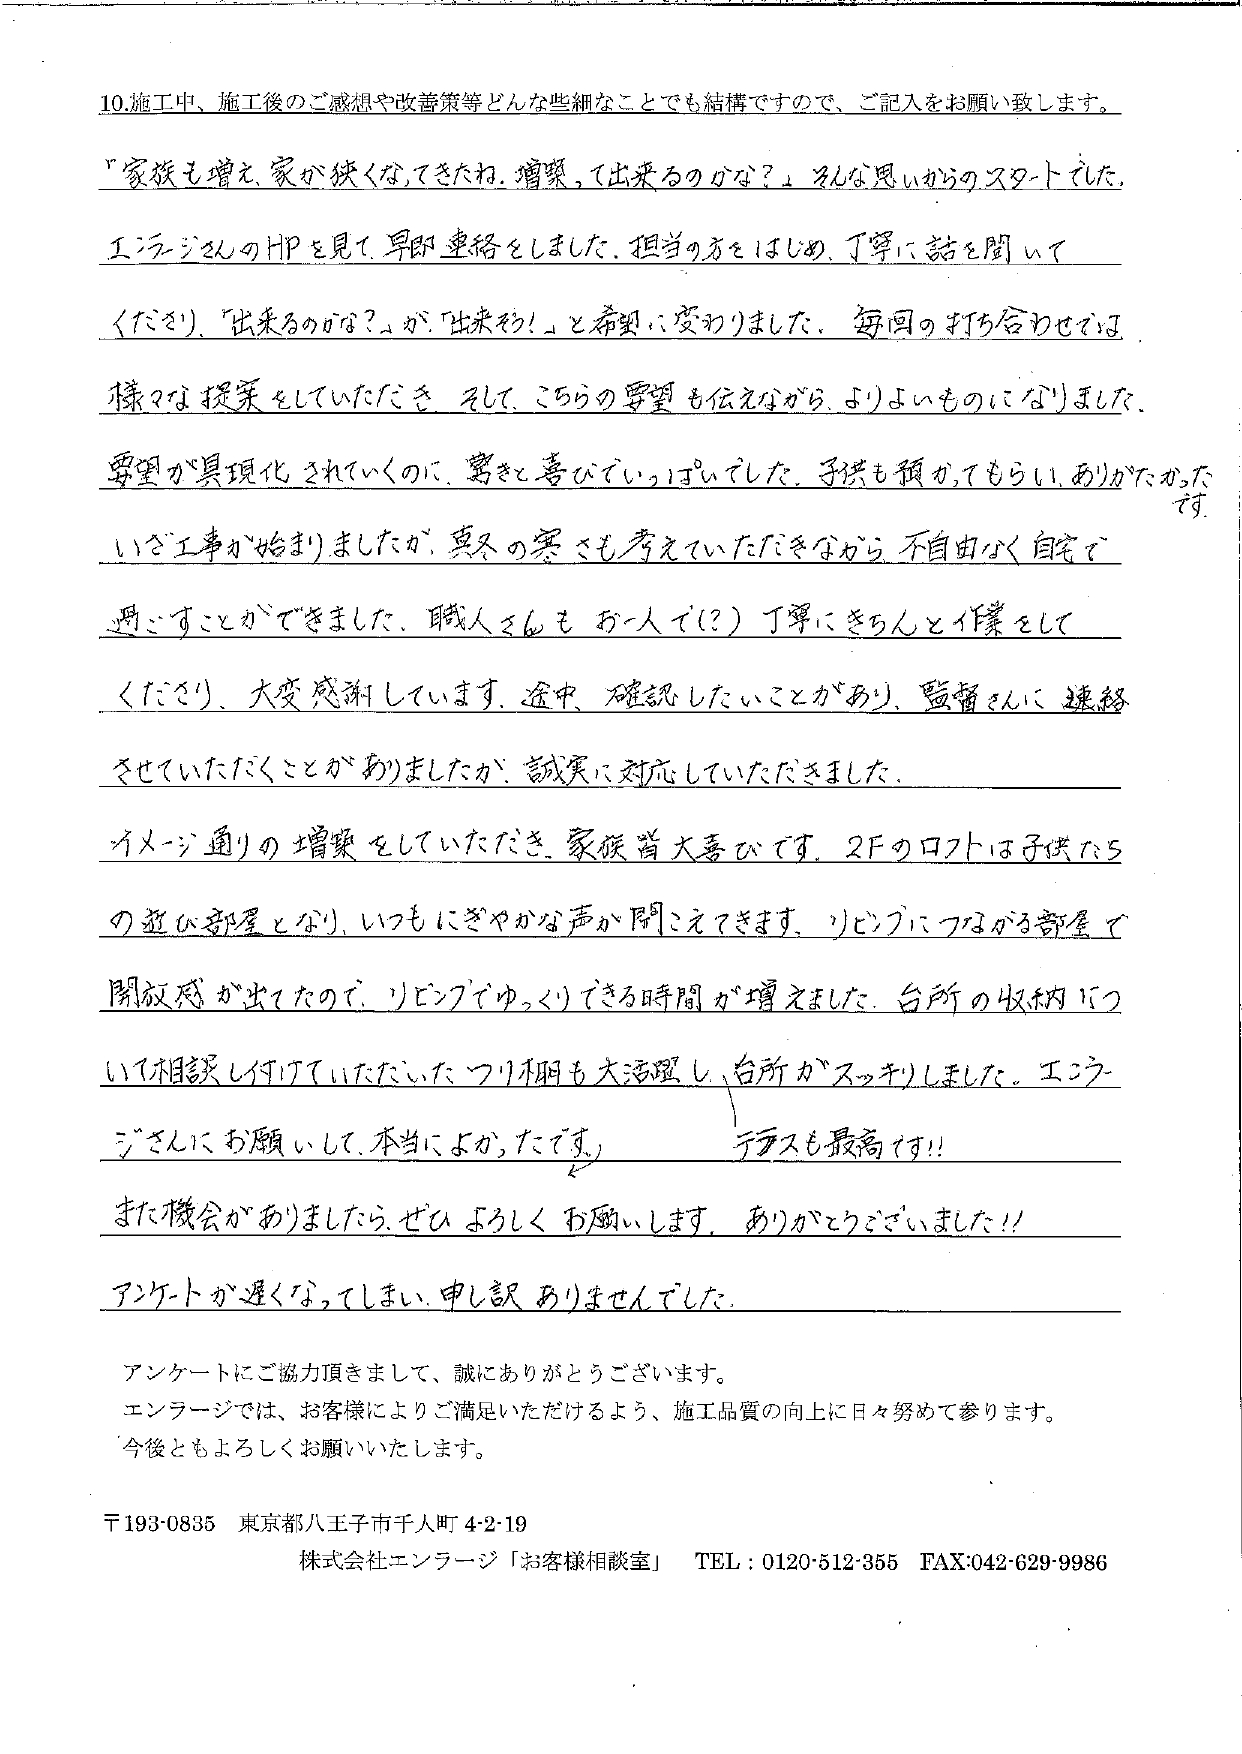 10.施工中、施工後のご感想や改善策等どんな些細なことでも結構ですので、ご記入をお願い致します。
『家族も増え、家が狭くなってきたね。増築って出来るのかな？』そんな思いからのスタートでした。
エンラージさんのHPを見て、早即連絡をしました。担当の方をはじめ、丁寧に話を聞いて
くださり、「出来るのかな？」が、「出来そう！」と希望に変わりました。 毎回の打ち合わせでは、
様々な提案をしていただき そして、こちらの要望も伝えながら、よりよいものになりました。
要望が具現化されていくのに、驚きと喜びでいっぱいでした。子供も預かってもらい、ありがたかった
です。
いざ工事が始まりましたが、真冬の寒さも考えていただきながら、不自由なく自宅で
過ごすことができました。職人さんも お一人で(？) 丁寧にきちんと作業をして
くださり、大変感謝しています。途中、確認したいことがあり、監督さんに連絡
させていただくことがありましたが、誠実に対応していただきました。
イメージ通りの増築をしていただき、家族皆大喜びです。2Fのロフトは子供たち
の遊び部屋となり、いつもにぎやかな声が聞こえてきます。リビングにつながる部屋で
開放感が出てたので、リビングでゆっくりできる時間が増えました。台所の収納につ
いて相談し付けていただいたつり棚も大活躍し、台所がスッキリしました。エンラー
ジさんにお願いして、本当によかったです。
テラスも最高です!!
また機会がありましたら、ぜひよろしくお願いします。ありがとうございました!!
アンケートが遅くなってしまい、申し訳ありませんでした。
アンケートにご協力頂きまして、誠にありがとうございます。
エンラージでは、お客様によりご満足いただけるよう、施工品質の向上に日々努めて参ります。
今後ともよろしくお願いいたします。
〒193-0835 東京都八王子市千人町 4-2-19
株式会社エンラージ「お客様相談室」 TEL：0120-512-355 FAX:042-629-9986